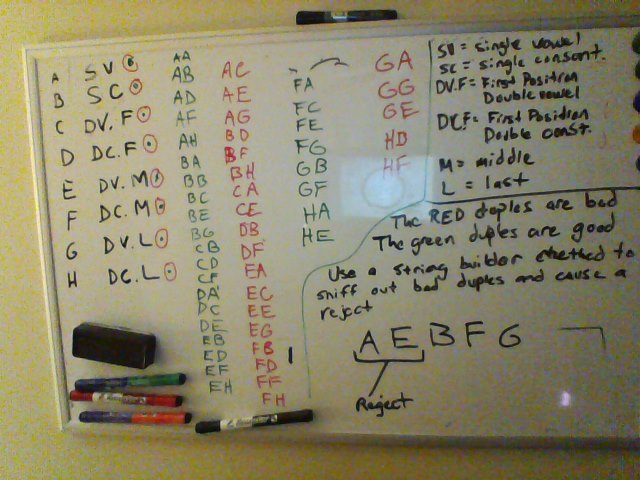 A SV
B SC
C DV.F
D DC.F
E DV.M
F DC.M
G DV.L
H DC.L
AA
AB
AD
AF
AH
BA
BB
BC
BE
BG
CB
CD
CF
DA
DC
DE
EB
ED
EF
EH
AC
AE
AG
BD
BF
BH
CA
CE
DB
DF
EA
EC
EE
EG
FB
FD
FF
FH
FA
FC
FE
FG
GB
GF
HA
HE
GA
GG
GE
HB
HF
SV = single vowel
SC = single consont.
DV.F = First Position
Double vowel
DC.F = First Position
Double const.
M = middle
L = last
The RED duples are bad
The green duples are good
Use a string builder method to
sniff out bad duples and cause a
reject
AEBFG
Reject